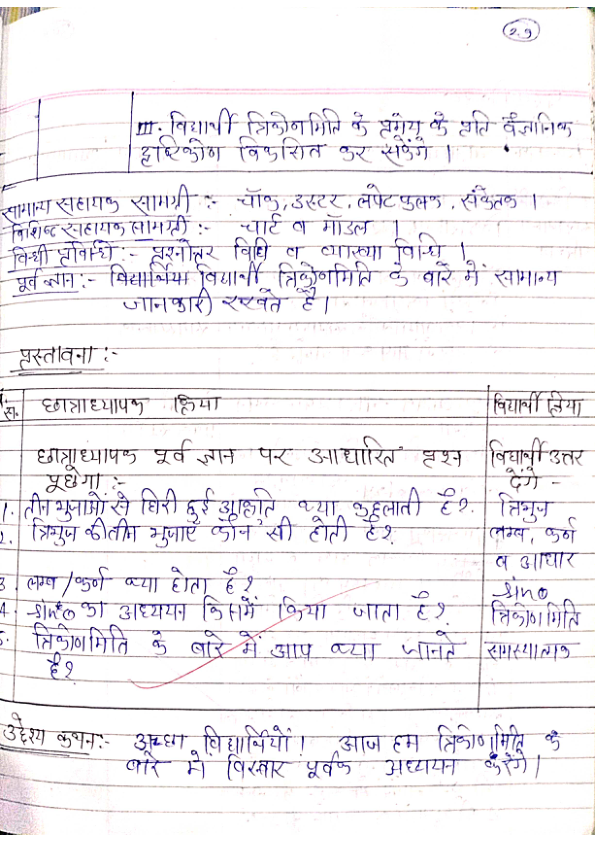 29
III. विद्यार्थी त्रिकोणमिति के प्रमेय के प्रति वैज्ञानिक
दृष्टिकोण विकसित कर सकेंगे ।
सामान्य सहायक सामग्री :- चॉक, डस्टर, लपेटफलक, संकेतक ।
विशिष्ट सहायक सामग्री :- चार्ट व मॉडल ।
विधी प्रविधि :- प्रश्नोत्तर विधि व व्याख्या विधि ।
पूर्व ज्ञान :- विद्यार्थिया विद्यार्थी त्रिकोणमिति के बारे में सामान्य
जानकारी रखते है ।
प्रस्तावना :-
स. छात्राध्यापक क्रिया विद्यार्थी क्रिया
छात्राध्यापक पूर्व ज्ञान पर आधारित प्रश्न विद्यार्थी उत्तर
पूछेगा :- देंगे -
1. तीन भुजाओं से घिरी हुई आकृति क्या कहलाती है? त्रिभुज
2. त्रिभुज की तीन भुजाएँ कौन सी होती है? लम्ब, कर्ण
व आधार
3 लम्ब / कर्ण क्या होता है? sinθ
4. sinθ का अध्ययन किसमें किया जाता है? त्रिकोणमिति
5. त्रिकोणमिति के बारे में आप क्या जानते समस्यात्मक
है?
उद्देश्य कथन :- अच्छा विद्यार्थियों ! आज हम त्रिकोणमिति के
बारे में विस्तार पूर्वक अध्ययन करेंगे ।